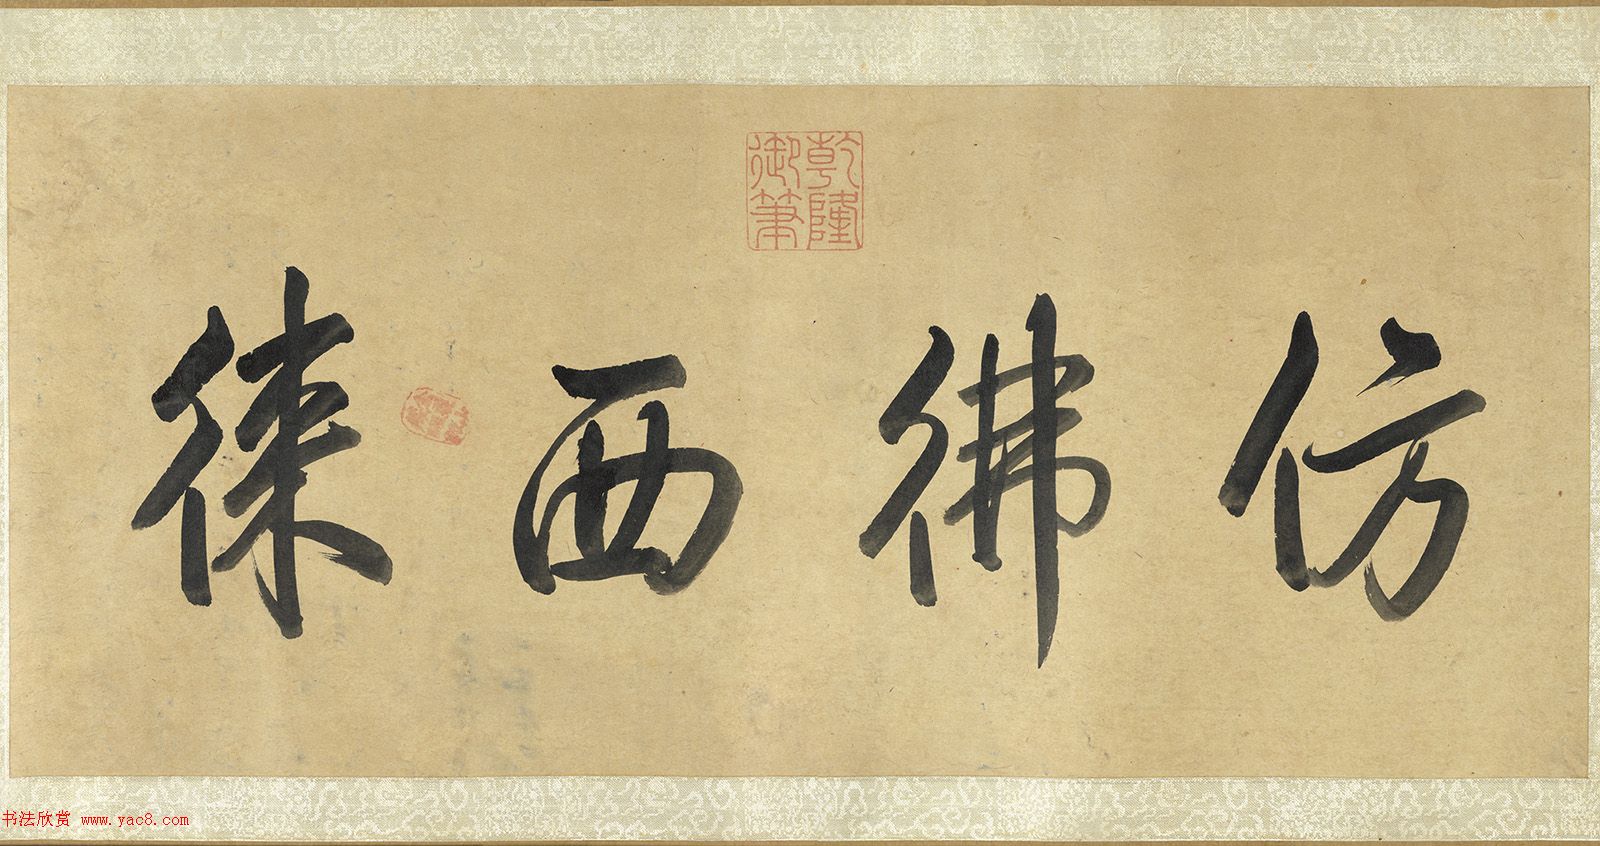 乾隆御筆
仿彿西徠
书法欣赏 www.yac8.com